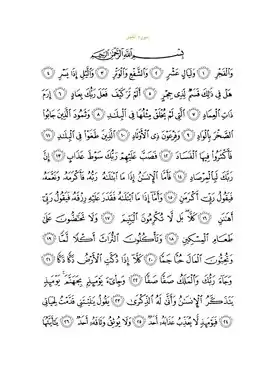 سورة الفجر
بِسْمِ ٱللَّهِ ٱلرَّحْمَٰنِ ٱلرَّحِيمِ
وَٱلْفَجْرِ ١ وَلَيَالٍ عَشْرٍ ٢ وَٱلشَّفْعِ وَٱلْوَتْرِ ٣ وَٱلَّيْلِ إِذَا يَسْرِ ٤
هَلْ فِى ذَٰلِكَ قَسَمٌ لِّذِى حِجْرٍ ٥ أَلَمْ تَرَ كَيْفَ فَعَلَ رَبُّكَ بِعَادٍ ٦ إِرَمَ
ذَاتِ ٱلْعِمَادِ ٧ ٱلَّتِى لَمْ يُخْلَقْ مِثْلُهَا فِى ٱلْبِلَٰدِ ٨ وَثَمُودَ ٱلَّذِينَ جَابُوا۟
ٱلصَّخْرَ بِٱلْوَادِ ٩ وَفِرْعَوْنَ ذِى ٱلْأَوْتَادِ ١٠ ٱلَّذِينَ طَغَوْا۟ فِى ٱلْبِلَٰدِ ١١
فَأَكْثَرُوا۟ فِيهَا ٱلْفَسَادَ ١٢ فَصَبَّ عَلَيْهِمْ رَبُّكَ سَوْطَ عَذَابٍ ١٣ إِنَّ
رَبَّكَ لَبِٱلْمِرْصَادِ ١٤ فَأَمَّا ٱلْإِنسَٰنُ إِذَا مَا ٱبْتَلَىٰهُ رَبُّهُۥ فَأَكْرَمَهُۥ وَنَعَّمَهُۥ
فَيَقُولُ رَبِّىٓ أَكْرَمَنِ ١٥ وَأَمَّآ إِذَا مَا ٱبْتَلَىٰهُ فَقَدَرَ عَلَيْهِ رِزْقَهُۥ فَيَقُولُ رَبِّىٓ
أَهَٰنَنِ ١٦ كَلَّا بَل لَّا تُكْرِمُونَ ٱلْيَتِيمَ ١٧ وَلَا تَحَٰٓضُّونَ عَلَىٰ
طَعَامِ ٱلْمِسْكِينِ ١٨ وَتَأْكُلُونَ ٱلتُّرَاثَ أَكْلًا لَّمًّا ١٩
وَتُحِبُّونَ ٱلْمَالَ حُبًّا جَمًّا ٢٠ كَلَّآ إِذَا دُكَّتِ ٱلْأَرْضُ دَكًّا دَكًّا ٢١
وَجَآءَ رَبُّكَ وَٱلْمَلَكُ صَفًّا صَفًّا ٢٢ وَجِا۟ىٓءَ يَوْمَئِذٍۭ بِجَهَنَّمَ يَوْمَئِذٍ
يَتَذَكَّرُ ٱلْإِنسَٰنُ وَأَنَّىٰ لَهُ ٱلذِّكْرَىٰ ٢٣ يَقُولُ يَٰلَيْتَنِى قَدَّمْتُ لِحَيَاتِى
٢٤ فَيَوْمَئِذٍ لَّا يُعَذِّبُ عَذَابَهُۥٓ أَحَدٌ ٢٥ وَلَا يُوثِقُ وَثَاقَهُۥٓ أَحَدٌ ٢٦ يَٰٓأَيَّتُهَا